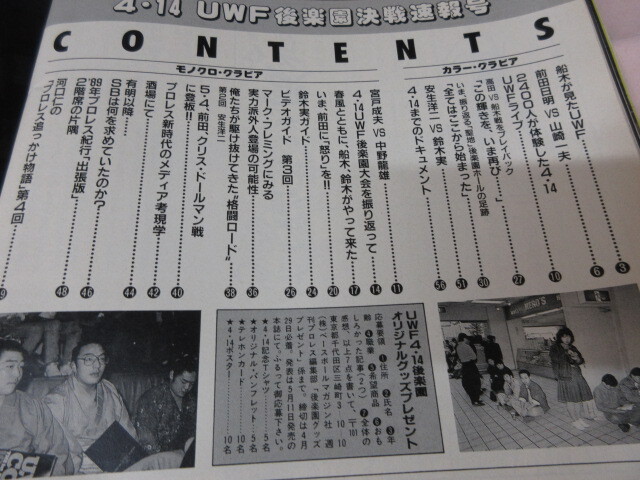 4・14 UWF後楽園決戦速報号
CONTENTS
カラー・グラビア
船木が見たUWF 3
前田日明 VS 山崎一夫 6
2400人が体験した4・14 10
UWFライブフォト
高田 VS 船木戦をプレイバック
“この輝きを、いま再び……” 27
いま、振り返る、“聖地”後楽園ホールの足跡
“全てはここから始まった” 30
安生洋二 VS 鈴木実 51
4・14までのドキュメント 56
モノクロ・グラビア
宮戸成夫 VS 中野龍雄 11
4・14UWF後楽園大会を振り返って 14
春風とともに、船木、鈴木がやって来た 17
いま、前田に“怒り”を!! 20
鈴木実ガイド 24
ビデオガイド 第3回 26
マーク・フレミングにみる
実力派外人登場の可能性 36
俺たちが駆け抜けてきた“格闘ロード”
第2回 安生洋二 38
5・4、前田、クリス・ドールマン戦
に登坂!! 40
プロレス新時代のメディア考現学
酒場にて 42
有明以降、
SBは何を求めていたのか? 44
'89年プロレス紀行「出張版」 46
2階席の片隅 48
河口仁の
“プロレス追っかけ物語”第4回 49
UWF4・14後楽園
オリジナルグッズプレゼント
応募要領 ❶住所 ❷氏名 ❸年
齢 ❹職業 ❺希望商品 ❻おも
しろかった記事(2つ) ❼全体の
感想、以上7点を書いて、〒101
東京都千代田区三崎町3-10-10
(株)ベースボールマガジン社 週
刊プロレス編集部「後楽園グッズ
プレゼント」係まで。締切は4月
29日必着、発表は5月11日発売の
本誌にて。ふるって御応募下さい。
★4・14記念Tシャツ……5名
★オリジナル・パンフレット……5名
★テレホンカード……10名
★4・14ポスター……10名